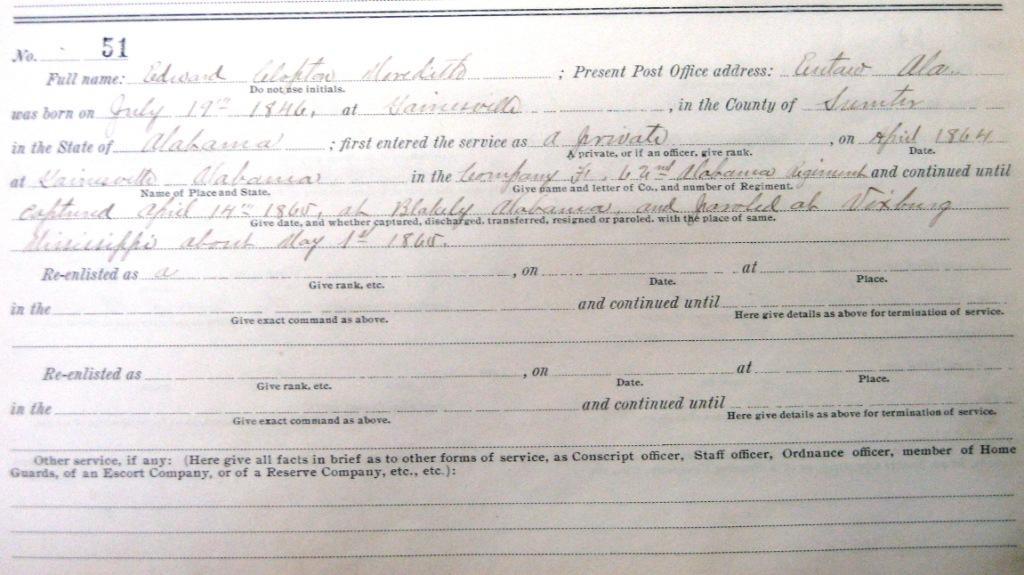 No. 51
Full name: Edward Clopton Meredith ; Present Post Office address: Eutaw Ala.
Do not use initials.
was born on July 19th 1846, at Gainesville , in the County of Sumter
in the State of Alabama ; first entered the service as a private , on April 1864
A private, or if an officer, give rank. Date.
at Gainesville Alabama in the Company F. 62nd Alabama Regiment and continued until
Name of Place and State. Give name and letter of Co., and number of Regiment.
captured April 14th 1865, at Blakely Alabama, and paroled at Vixburg
Give date, and whether captured, discharged, transferred, resigned or paroled, with the place of same.
Mississippi about May 1st 1865.
Re-enlisted as a , on at
Give rank, etc. Date. Place.
in the and continued until
Give exact command as above. Here give details as above for termination of service.
Re-enlisted as , on at
Give rank, etc. Date. Place.
in the and continued until
Give exact command as above. Here give details as above for termination of service.
Other service, if any: (Here give all facts in brief as to other forms of service, as Conscript officer, Staff officer, Ordnance officer, member of Home
Guards, of an Escort Company, or of a Reserve Company, etc., etc.):